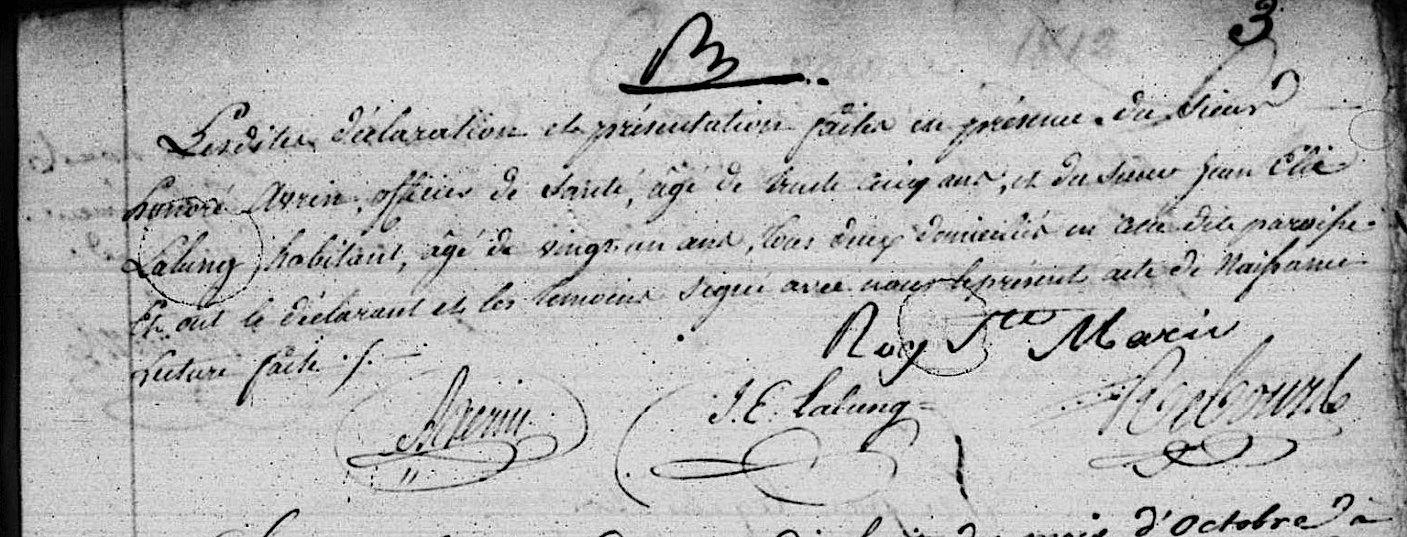 3
B
Lesdites déclaration et présentation faites en présence du Sieur
honoré Avrin, officier de Santé, âgé de trente cinq ans, et du Sieur Jean Elie
Lalung habitant, âgé de vingt un ans, tous deux domiciliés en cette dite paroisse.
Et ont le déclarant et les temoins signé avec nous le présent acte de Naissance
Lecture faite ./.
Roy Ste Marie
J. E. Lalung
mois d'Octobre à